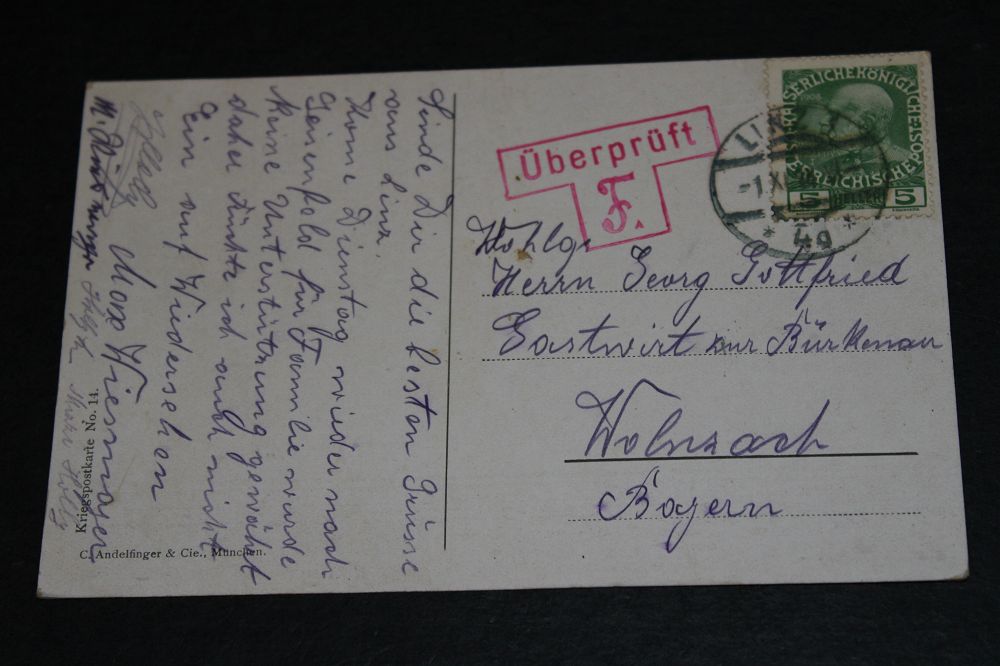 Sende Dir die besten Grüsse
von Linz
Kome Dienstag wieder nach
Geisenfeld für Familie wurde
Keine Unterstützung gewährt
daher dürfte ich auch nicht
Ein auf Wiedersehen
Max Wiesmayer
Kriegspostkarte No. 14.
C. Andelfinger & Cie., München.
Überprüft
F.
KAISERLICHEKÖNIGLICHE
ÖSTERREICHISCHE POST
5 HELLER 5
LINZ
-1.XI
* 4g *
Wohlge
Herrn Georg Gottfried
Gastwirt zur Bürkenau
Wolnzach
Bayern